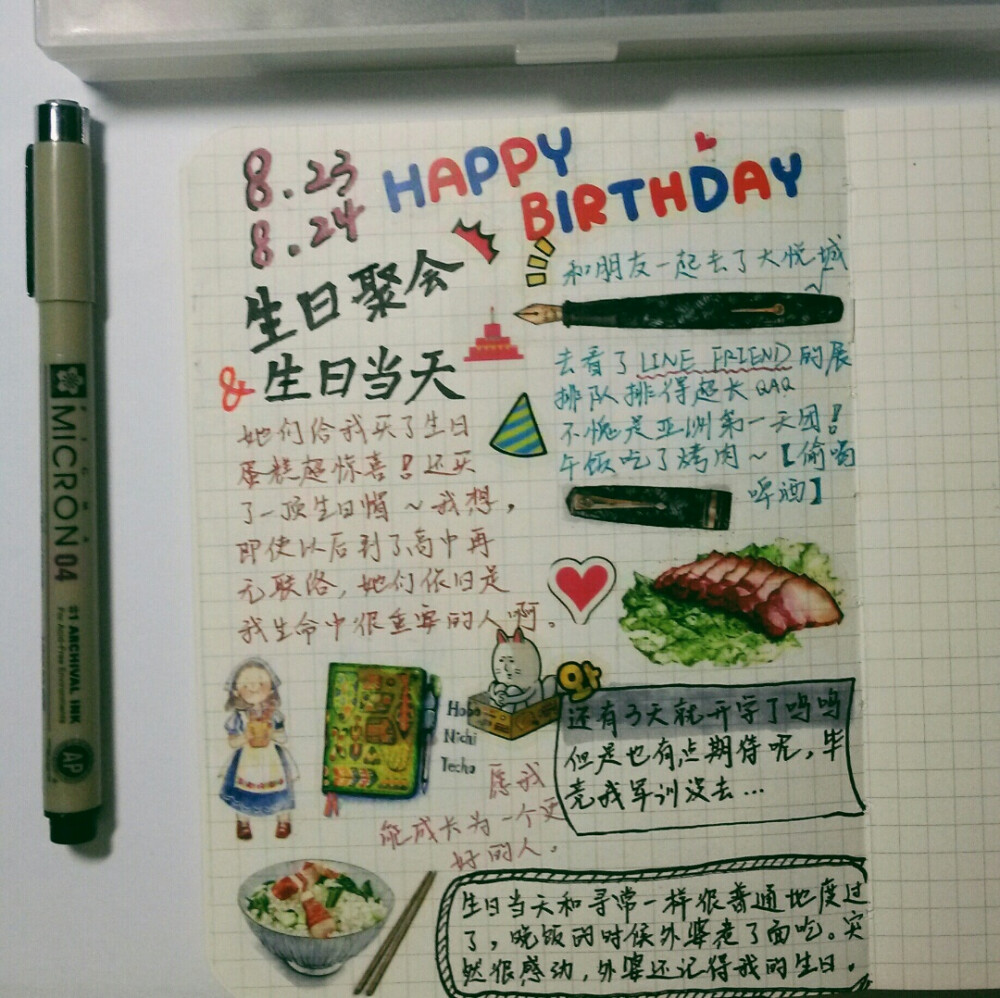 8.23
8.24
HAPPY
BIRTHDAY
生日聚会
&生日当天
她们给我买了生日
蛋糕超惊喜！还买
了一顶生日帽～我想，
即使以后到了高中再
无联络，她们依旧是
我生命中很重要的人啊。
和朋友一起去了大悦城
～
去看了LINE FRIEND的展
排队排得超长QAQ
不愧是亚洲第一天团！
午饭吃了烤肉～【偷喝
啤酒】
Hobo
Nichi
Techo
愿我
能成长为一个更
好的人。
와
还有3天就开学了呜呜
但是也有点期待呢，毕
竟我军训没去...
生日当天和寻常一样很普通地度过
了，晚饭的时候外婆煮了面吃。突
然很感动，外婆还记得我的生日。
MICRON 04
ARCHIVAL INK
For Acid-Free Environments
AP